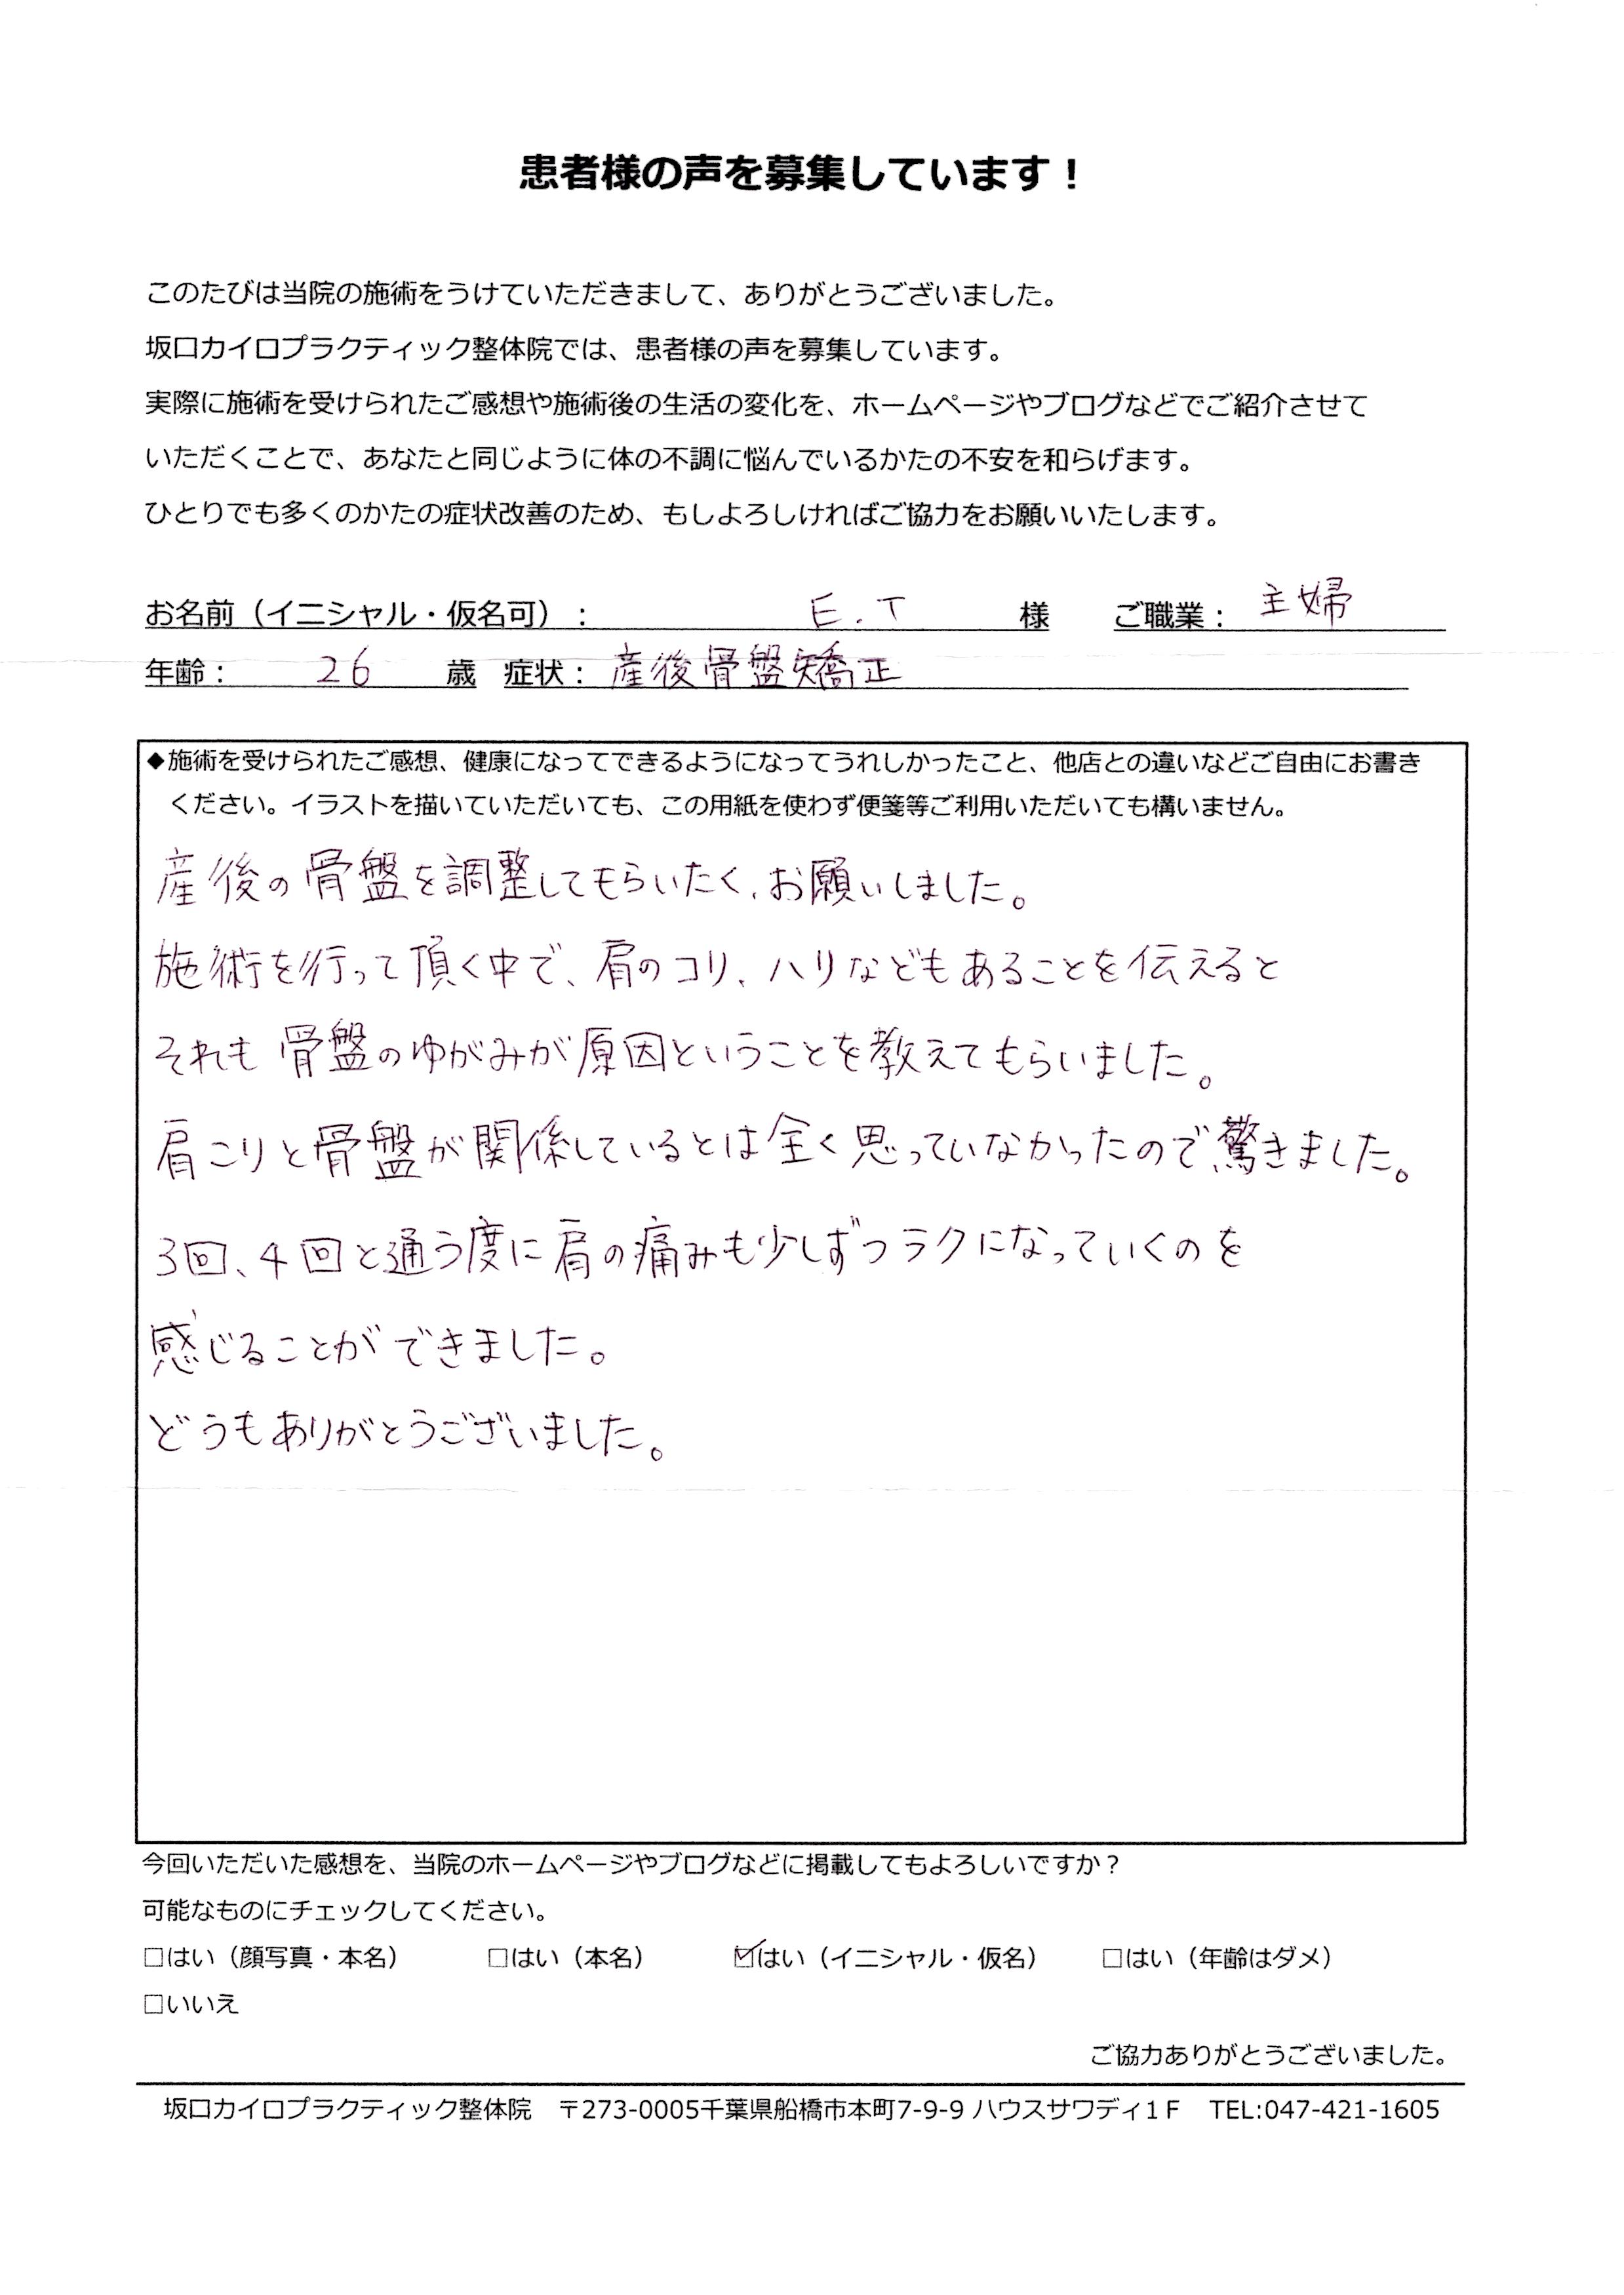 患者様の声を募集しています！
このたびは当院の施術をうけていただきまして、ありがとうございました。
坂口カイロプラクティック整体院では、患者様の声を募集しています。
実際に施術を受けられたご感想や施術後の生活の変化を、ホームページやブログなどでご紹介させて
いただくことで、あなたと同じように体の不調に悩んでいるかたの不安を和らげます。
ひとりでも多くのかたの症状改善のため、もしよろしければご協力をお願いいたします。
お名前（イニシャル・仮名可）： E.T 様 ご職業： 主婦
年齢： 26 歳 症状： 産後骨盤矯正
◆施術を受けられたご感想、健康になってできるようになってうれしかったこと、他店との違いなどご自由にお書き
ください。イラストを描いていただいても、この用紙を使わず便箋等ご利用いただいても構いません。
産後の骨盤を調整してもらいたく、お願いしました。
施術を行って頂く中で、肩のコリ、ハリなどもあることを伝えると
それも骨盤のゆがみが原因ということを教えてもらいました。
肩こりと骨盤が関係しているとは全く思っていなかったので驚きました。
3回、4回と通う度に肩の痛みも少しずつラクになっていくのを
感じることができました。
どうもありがとうございました。
今回いただいた感想を、当院のホームページやブログなどに掲載してもよろしいですか？
可能なものにチェックしてください。
□はい（顔写真・本名） □はい（本名） ☑はい（イニシャル・仮名） □はい（年齢はダメ）
□いいえ
ご協力ありがとうございました。
坂口カイロプラクティック整体院 〒273-0005千葉県船橋市本町7-9-9 ハウスサワディ1F TEL:047-421-1605